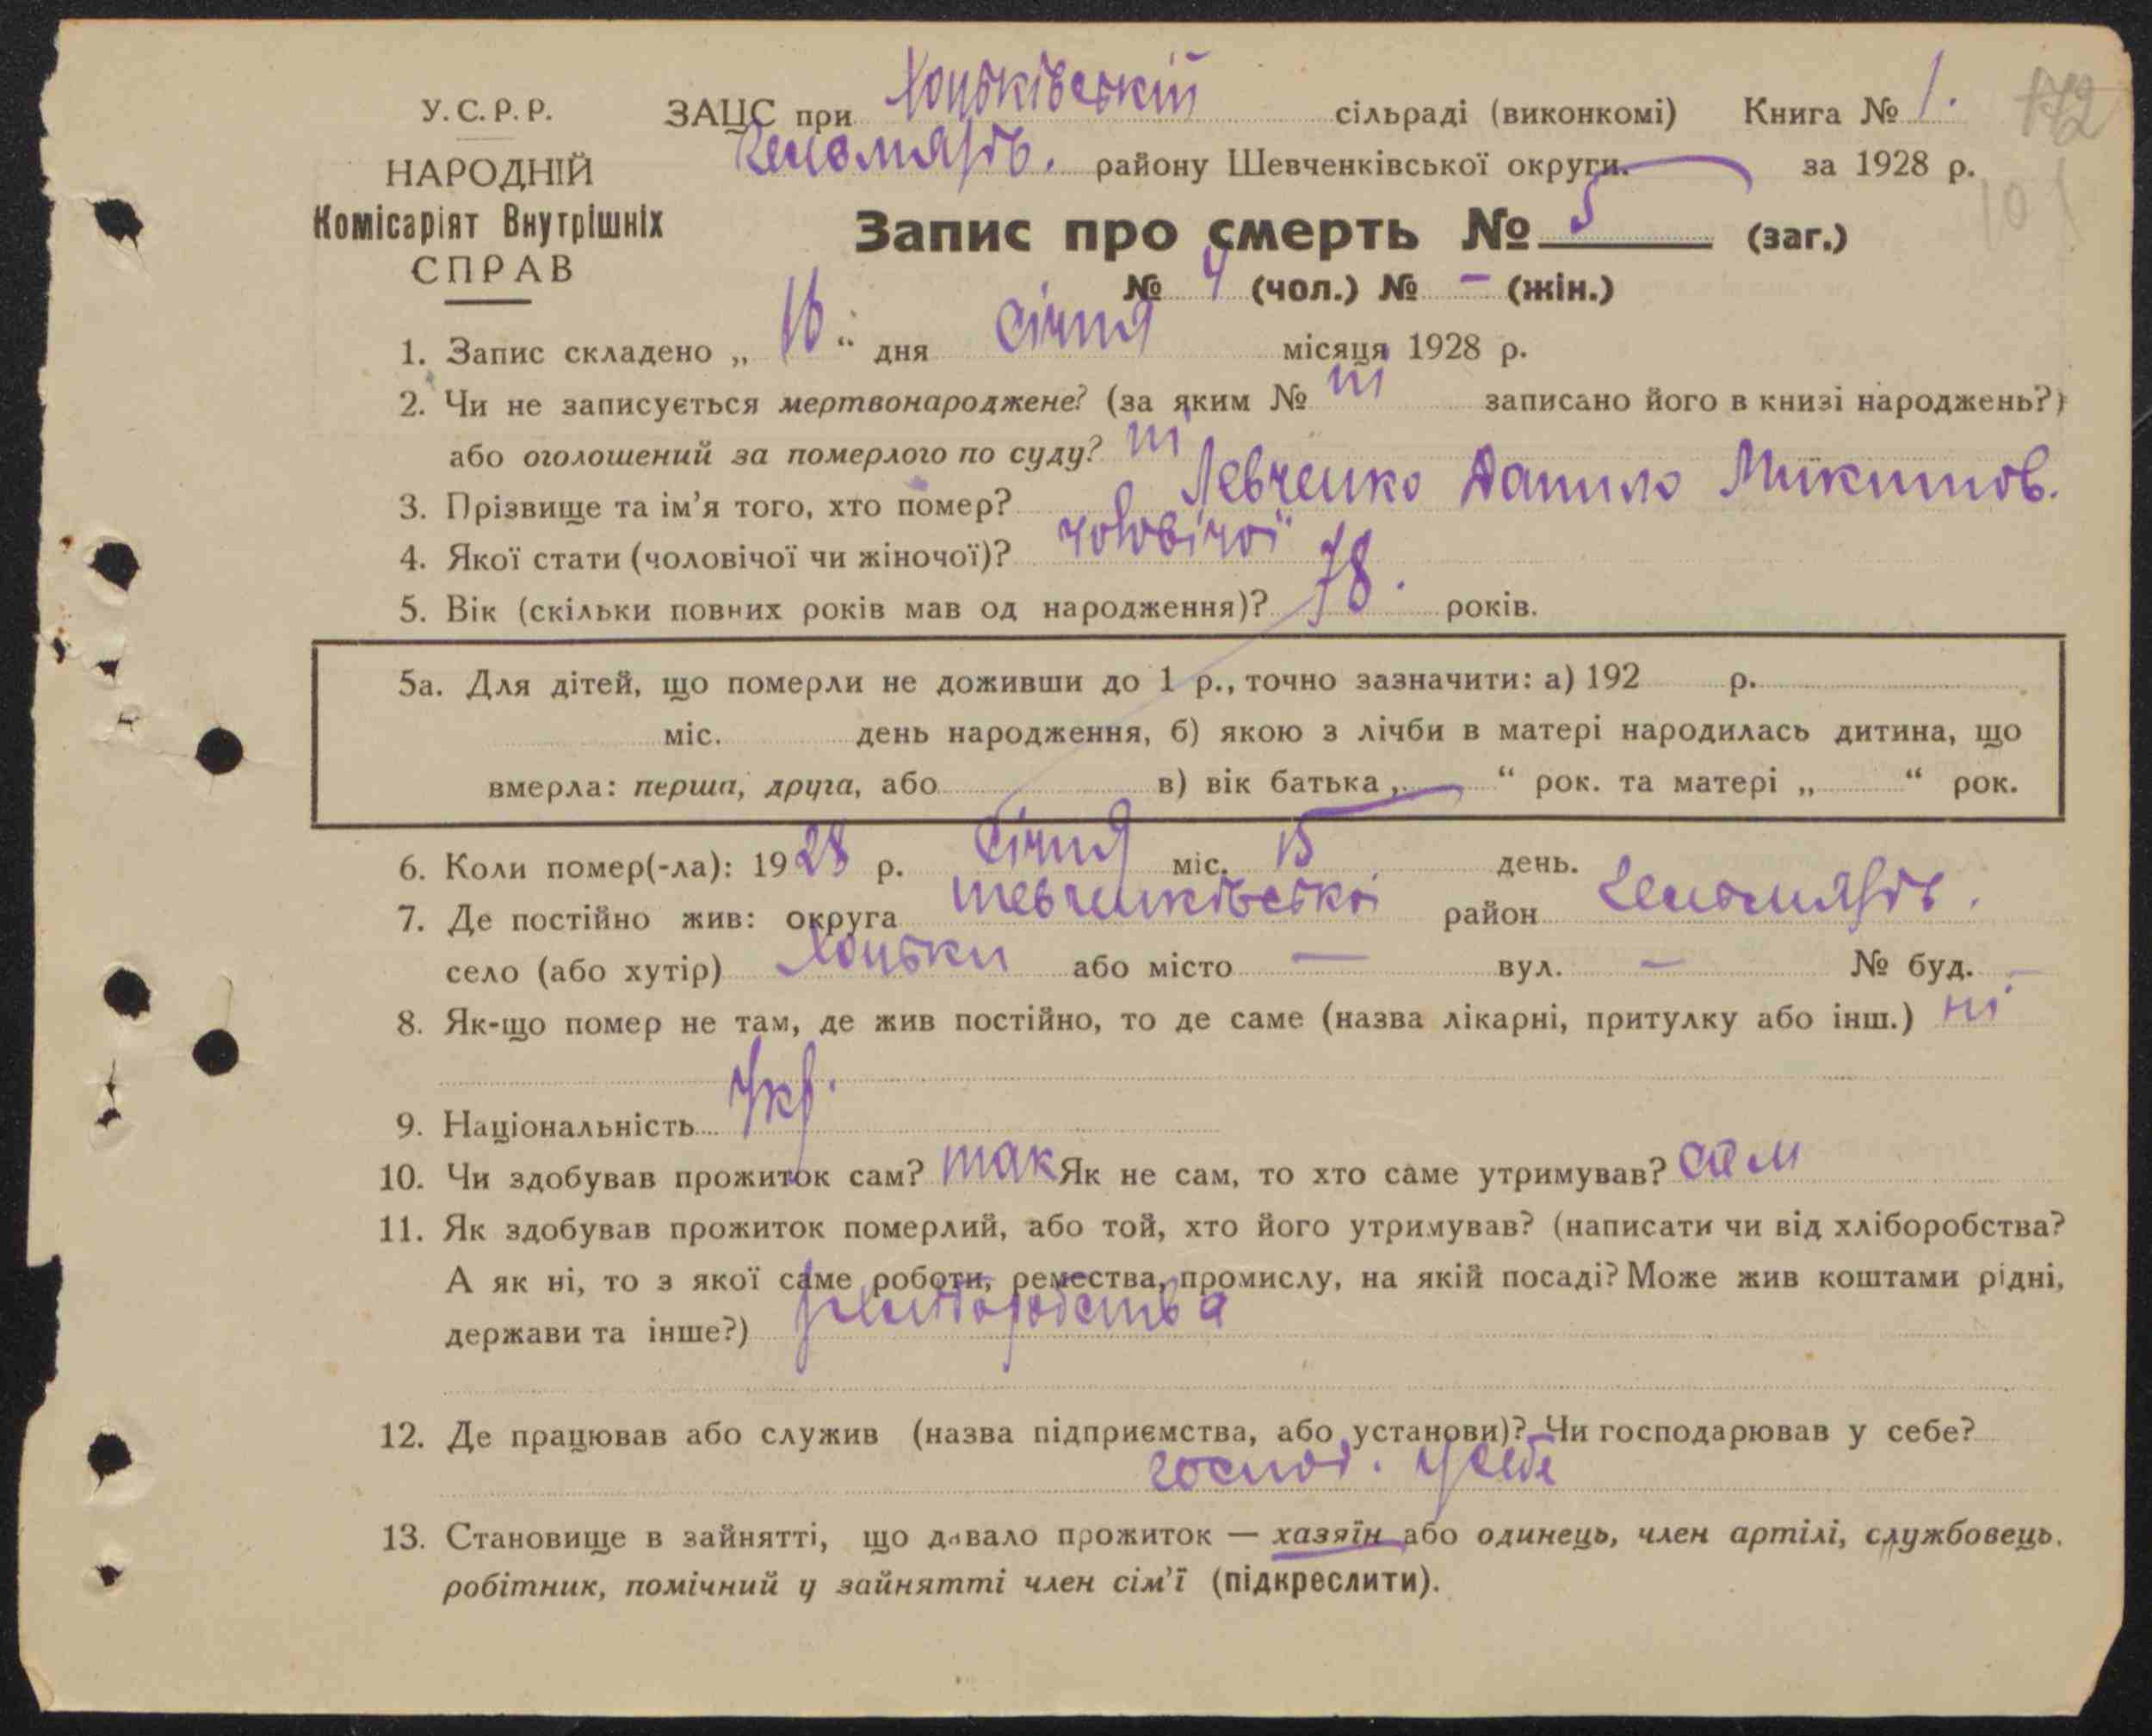 У.С.Р.Р.
НАРОДНІЙ
Комісаріят Внутрішніх
СПРАВ
ЗАЦС при Хоцьківській сільраді (виконкомі) Книга № 1. 172
Гельмязів. району Шевченківської округи. за 1928 р. 101
Запис про смерть № 5 (заг.)
№ 4 (чол.) № – (жін.)
1. Запис складено „ 16 “ дня січня місяця 1928 р.
2. Чи не записується мертвонароджене? (за яким № ні записано його в книзі народжень?)
або оголошений за померлого по суду? ні
3. Прізвище та ім’я того, хто помер? Левченко Данило Микитов.
4. Якої стати (чоловічої чи жіночої)? чоловічої
5. Вік (скільки повних років мав од народження)? 78. років.
5а. Для дітей, що померли не доживши до 1 р., точно зазначити: а) 192 р.
міс. день народження, б) якою з лічби в матері народилась дитина, що
вмерла: перша, друга, або в) вік батька „ — “ рок. та матері „ “ рок.
6. Коли помер(-ла): 1928 р. січня міс. 15 день.
7. Де постійно жив: округа Шевченківській район Гельмязів.
село (або хутір) Хоцьки або місто — вул. — № буд. —
8. Як-що помер не там, де жив постійно, то де саме (назва лікарні, притулку або інш.) ні
9. Національність Укр.
10. Чи здобував прожиток сам? так Як не сам, то хто саме утримував? сам
11. Як здобував прожиток померлий, або той, хто його утримував? (написати чи від хліборобства?
А як ні, то з якої саме роботи, ремества, промислу, на якій посаді? Може жив коштами рідні,
держави та інше?)
12. Де працював або служив (назва підприємства, або установи)? Чи господарював у себе?
господ. у себе
13. Становище в зайнятті, що давало прожиток — хазяїн або одинець, член артілі, службовець,
робітник, помічний у зайнятті член сім’ї (підкреслити).